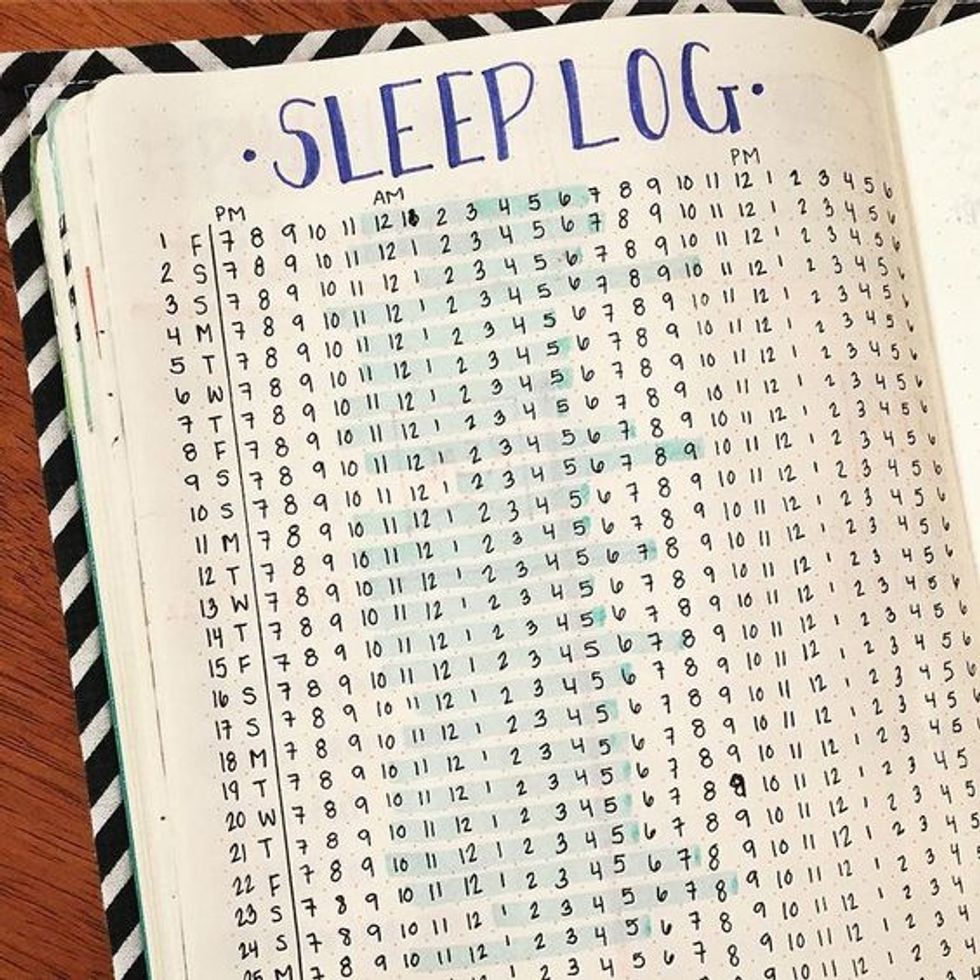 ·SLEEP LOG·
PM AM PM
1 F 7 8 9 10 11 12 1 2 3 4 5 6 7 8 9 10 11 12 1 2 3 4 5 6
2 S 7 8 9 10 11 12 1 2 3 4 5 6 7 8 9 10 11 12 1 2 3 4 5 6
3 S 7 8 9 10 11 12 1 2 3 4 5 6 7 8 9 10 11 12 1 2 3 4 5 6
4 M 7 8 9 10 11 12 1 2 3 4 5 6 7 8 9 10 11 12 1 2 3 4 5 6
5 T 7 8 9 10 11 12 1 2 3 4 5 6 7 8 9 10 11 12 1 2 3 4 5 6
6 W 7 8 9 10 11 12 1 2 3 4 5 6 7 8 9 10 11 12 1 2 3 4 5 6
7 T 7 8 9 10 11 12 1 2 3 4 5 6 7 8 9 10 11 12 1 2 3 4 5 6
8 F 7 8 9 10 11 12 1 2 3 4 5 6 7 8 9 10 11 12 1 2 3 4 5 6
9 S 7 8 9 10 11 12 1 2 3 4 5 6 7 8 9 10 11 12 1 2 3 4 5 6
10 S 7 8 9 10 11 12 1 2 3 4 5 6 7 8 9 10 11 12 1 2 3 4 5 6
11 M 7 8 9 10 11 12 1 2 3 4 5 6 7 8 9 10 11 12 1 2 3 4 5 6
12 T 7 8 9 10 11 12 1 2 3 4 5 6 7 8 9 10 11 12 1 2 3 4 5 6
13 W 7 8 9 10 11 12 1 2 3 4 5 6 7 8 9 10 11 12 1 2 3 4 5 6
14 T 7 8 9 10 11 12 1 2 3 4 5 6 7 8 9 10 11 12 1 2 3 4 5 6
15 F 7 8 9 10 11 12 1 2 3 4 5 6 7 8 9 10 11 12 1 2 3 4 5 6
16 S 7 8 9 10 11 12 1 2 3 4 5 6 7 8 9 10 11 12 1 2 3 4 5 6
17 S 7 8 9 10 11 12 1 2 3 4 5 6 7 8 9 10 11 12 1 2 3 4 5 6
18 M 7 8 9 10 11 12 1 2 3 4 5 6 7 8 9 10 11 12 1 2 3 4 5 6
19 T 7 8 9 10 11 12 1 2 3 4 5 6 7 8 9 10 11 12 1 2 3 4 5 6
20 W 7 8 9 10 11 12 1 2 3 4 5 6 7 8 9 10 11 12 1 2 3 4 5
21 T 7 8 9 10 11 12 1 2 3 4 5 6 7 8 9 10 11 12 1 2 3 4 5
22 F 7 8 9 10 11 12 1 2 3 4 5 6 7 8 9 10 11 12 1 2 3 4 5
23 S 7 8 9 10 11 12 1 2 3 4 5 6 7 8 9 10 11 12 1 2 3 4 5
24 S 7 8 9 10 11 12 1 2 3 4 5 6 7 8 9 10 11 12 1 2 3 4
25 M 7 8 9 10 11 12 1 2 3 4 5 6 7 8 9 10 11 12 1 2 3 4